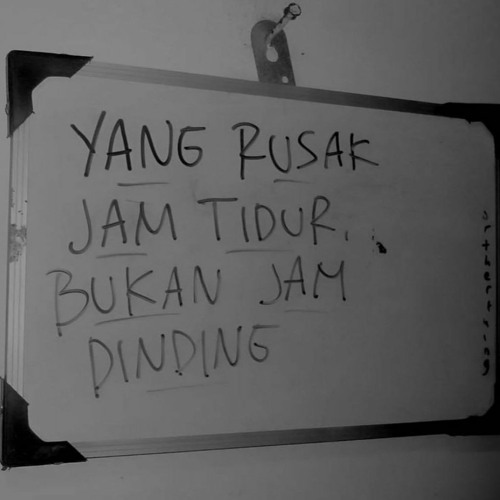 YANG RUSAK
JAM TIDUR.
BUKAN JAM
DINDING